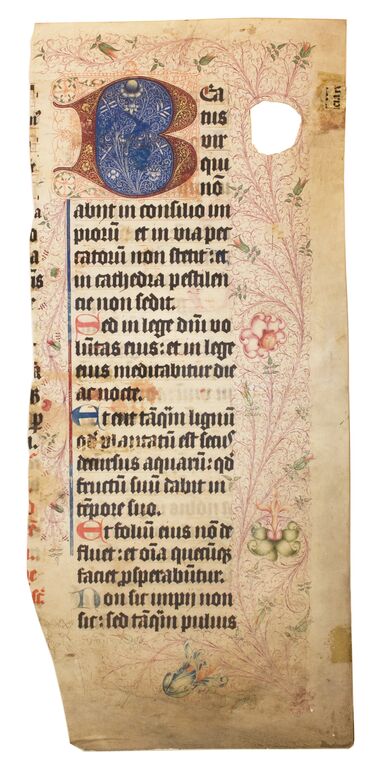 BEa
tus
vir
qui
nō
abijt in consilio im
piorū et in via pec
catorū non stetit: et
in cathedra pestilen
cie non sedit.
Sed in lege dn̄i vo
lūtas eius: et in lege
eius meditabitur die
ac nocte.
Et erit tāq̄m lignū
qd̄ plantatū est secus
decursus aquarū: qd̄
fructū suū dabit in
tēpore suo.
Et foliū eius nō de
fluet: et oīa quecūqꝫ
faciet ꝓsperabūtur.
Non sic impij non
sic: sed tāq̄m puluis